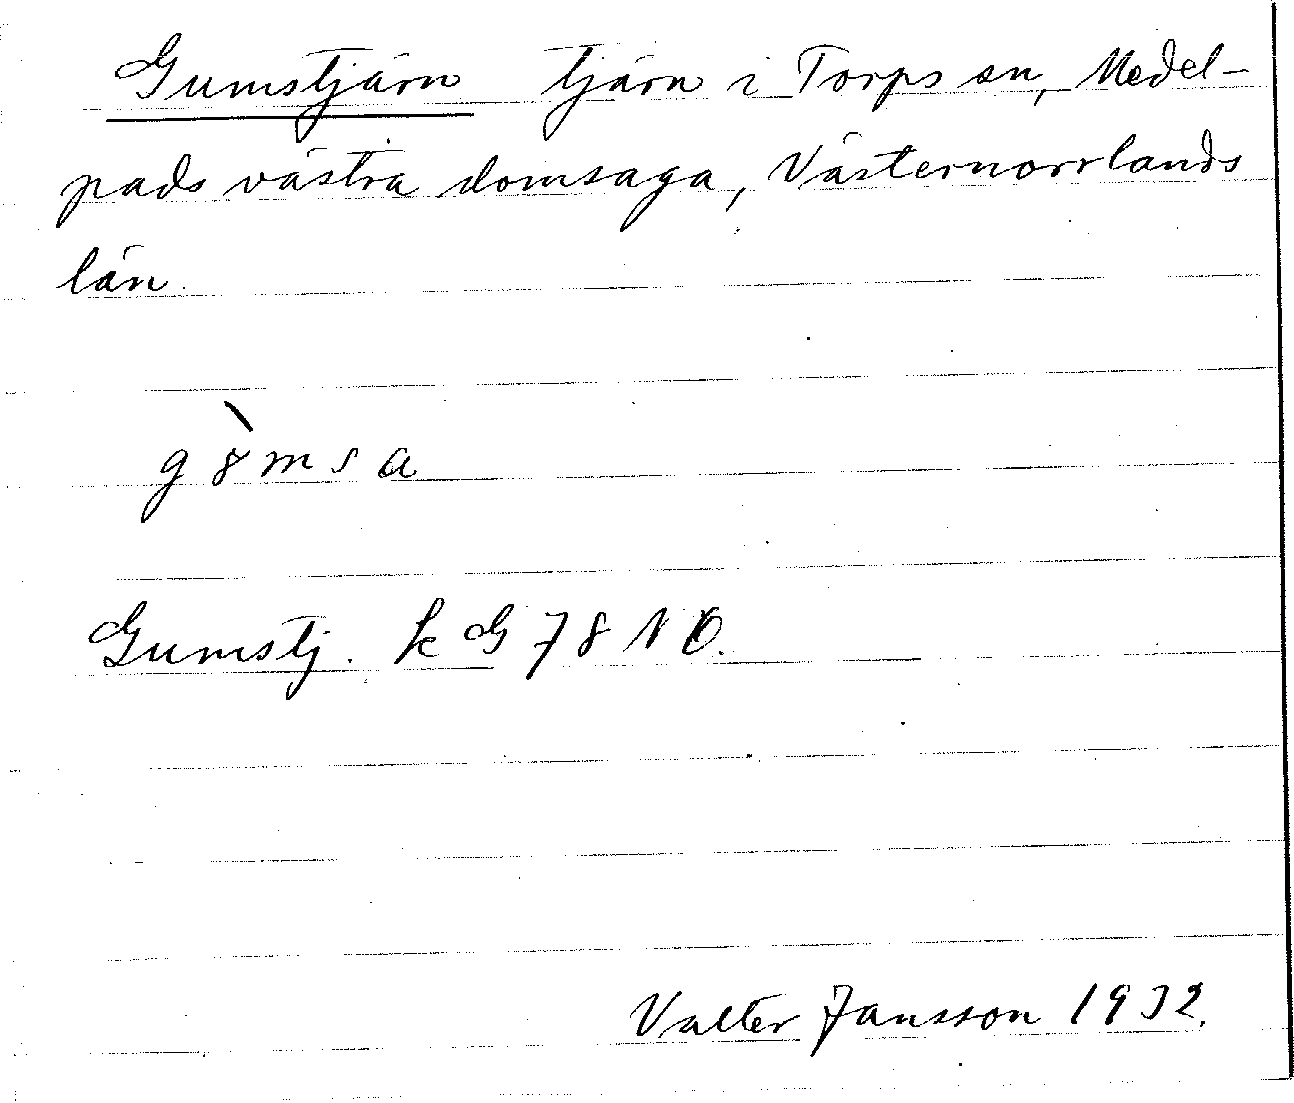 Gumstjärn tjärn i Torps sn, Medel-
pads västra domsaga, Västernorrlands
län.
g8̀msa
Gumstj. k G 78 NO.
Valter Jansson 1932.